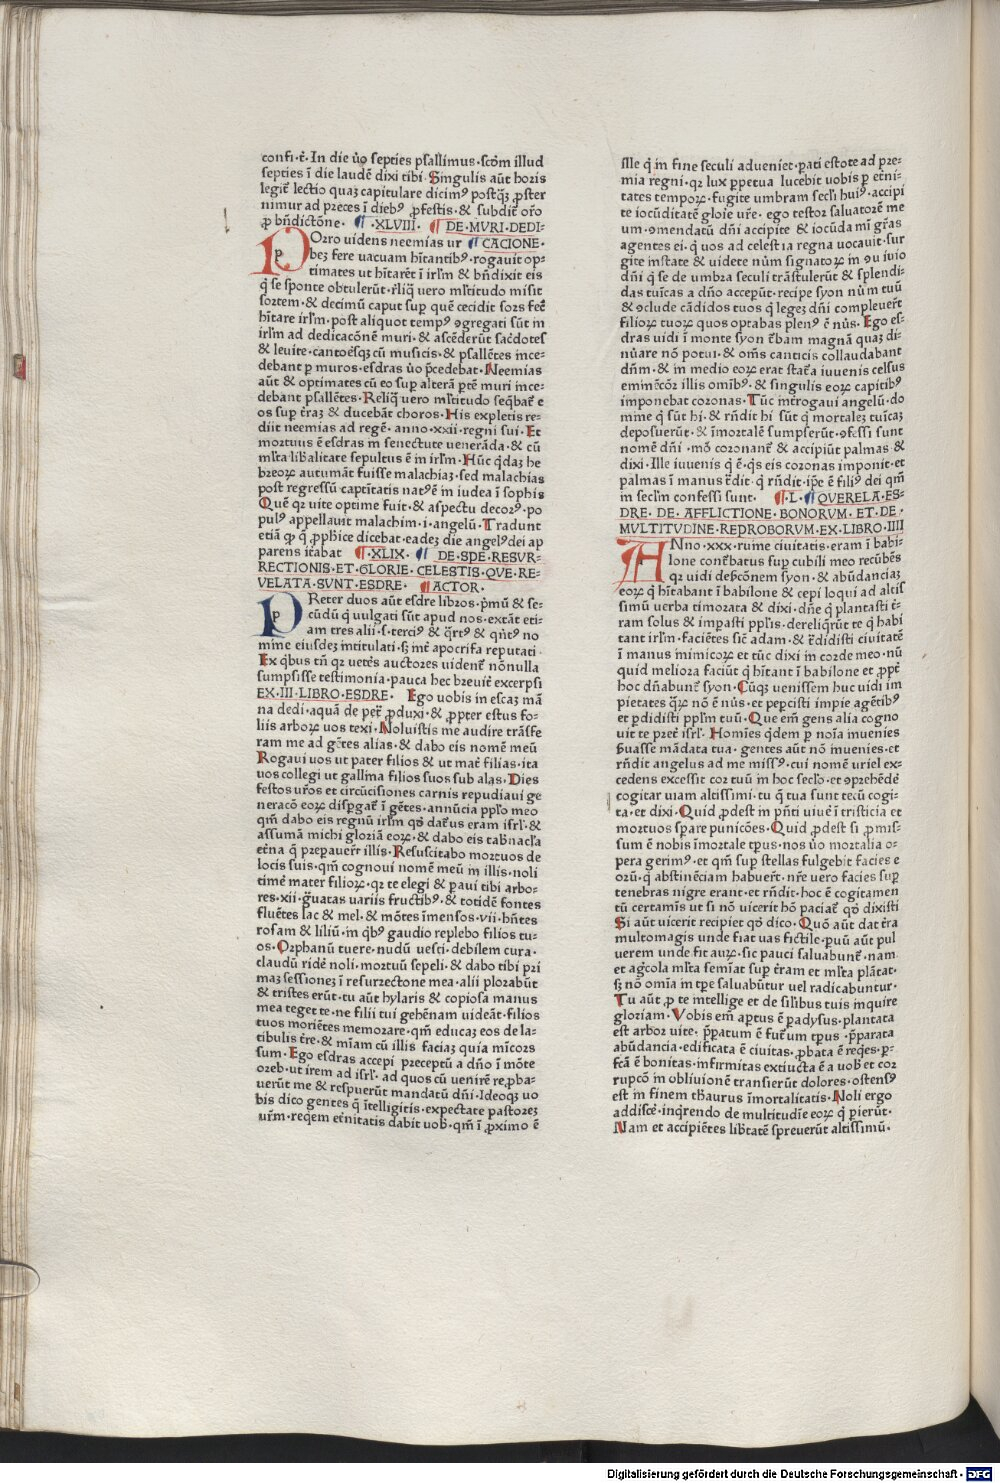 confi·t̄· In die ṽo septies psallimus·scōm illud
septies ī die laudē dixi tibi·Singulis aūt horis
legit̄ lectio quaȝ capitulare dicimꝰ postq̄ȝ ꝓster
nimur ad preces ī diebꝰ ꝓfestis·& subdit̄ or̄o
ꝓ bn̄dictōne· ¶·XLVIII· ¶ DE·MVRI·DEDI-
POrro uidens neemias ur ¶ CACIONE·
beȝ fere uacuam hītantibꝰ·rogauit op-
timates ut hītarēt ī irl̄m & bn̄dixit eis
q̄ se sponte obtulerūt·rl̄iq̄ uero ml̄titudo misit
sortem·& decimū caput sup quē cecidit sors fec̄
hītare irl̄m·post aliquot tempꝰ ꝯgregati sūt in
irl̄m ad dedicacōnē muri·& ascēderūt sac̄dotes
& leuite·cantoēsqȝ cū musicis·& psallētes ince-
debant p muros·esdras ṽo p̄cedebat·Neemias
aūt & optimates cū eo sup alterā ptē muri ince-
debant psallētes·Reliq̄ uero ml̄titudo seq̄bat̄ e
os sup t̄raȝ & ducebāt choros·His expletis re-
diit neemias ad regē·anno·xxii·regni sui·Et
mortuus ē esdras in senectute uenerāda·& cū
ml̄ta lib̄alitate sepultus ē in irl̄m·Hūc q̄daȝ he
breoꝝ autumāt fuisse malachiaȝ·sed malachias
post regressū captītatis natꝰē in iudea ī sophis
Quē qꝛ uite optime fuit·& aspectu decorꝰ·po
pulꝰ appellauit malachim·i·angelū·Tradunt
etiā ꝙ q̄ ꝓph̄ice dicebat·eadeȝ die angelꝰdei ap
parens itābat ¶·XLIX· ¶ DE·SPE·RESVR-
RECTIONIS·ET·GLORIE·CELESTIS·QVE·RE-
VELATA·SVNT·ESDRE· ¶ ACTOR·
PReter duos aūt esdre libros·p̄mū & se-
cūdū q̄ uulgati sūt apud nos·extāt eti-
am tres alii·s·terciꝰ & q̄rtꝰ & q̄ntꝰ no
mine eiusdeȝ intitulati·sȝ int̄ apocrifa reputati·
Ex q̄bus tn̄ qꝛ uet̄es auctores uident̄ nōnulla
sumpsisse testimonia·pauca hec breuit̄ excerpsi
EX·III·LIBRO·ESDRE· Ego uobis in escaȝ mā
na dedi·aquā de pet̄ ꝓduxi·& ꝓpter estus fo-
liis arboꝝ uos texi·Noluistis me audire trāsfe
ram me ad gētes alias·& dabo eis nomē meū
Rogaui uos ut pater filios & ut mat̄ filias·ita
uos collegi ut gallina filios suos sub alas·Dies
festos ur̄os et circūcisiones carnis repudiaui ge
neracō eoꝝ disp̄gat̄ ī gētes·annūcia pplo meo
qm̄ dabo eis regnū irl̄m qd̄ dat̄us eram isrl̄·&
assumā michi gloriā eoꝝ·& dabo eis tab̄nacl̄a
et̄na q̄ prepauer̄t illis·Resuscitabo mortuos de
locis suis·qm̄ cognoui nomē meū in illis·noli
timē mater filioꝝ·qꝛ te elegi & paui tibi arbo-
res·xii·g̈uatas uariis fructibꝰ·& totidē fontes
fluētes lac & mel·& mōtes īmensos·vii·hn̄tes
rosam & liliū·in q̄bꝰ gaudio replebo filios tu-
os·Orphanū tuere·nudū uesti·debilem cura·
claudū ridē noli·mortuū sepeli·& dabo tibi pri
maȝ sessioneȝ ī resurzectone mea·alii plozabūt
& tristes erūt·tu aūt hylaris & copiosa manus
mea teget te·ne filii tui gehēnam uideāt·filios
tuos moriētes memozare·qm̄ educaȝ eos de la-
tibulis t̄re·& mīam cū illis faciaȝ quia mīcors
sum·Ego esdras accepi preceptū a dn̄o ī mōte
ozeb·ut irem ad isrl̄·ad quos cū uenirē reꝓba-
uerūt me & respuerūt mandatū dn̄i·Ideoqȝ uo
bis dico gentes q̄ ītelligitis·expectate pastoreȝ
ur̄m·reqem et̄nitatis dabit uob̄·qm̄ ī ꝓximo ē
slle q̄ in fine seculi adueniet·pati estote ad pre-
mia regni·qꝛ lux ppetua lucebit uobis p et̄ni-
tates tempoꝝ·fugite umbram secl̄i huiꝰ·accipi
te iocūditatē glorīe ur̄e·ego testor saluatorē me
um·ꝯmendatū dn̄i accipite & iocūda mī gr̄as
agentes ei·q̄ uos ad celestia regna uocauit·sur
gite instate & uidete nūm signatoꝝ in ꝯuiuio
dn̄i q̄ se de umbra seculi trāstulerūt & splendi-
das tuīcas a dn̄o acceput·recipe syon nūm tuū
& ꝯclude cādidos tuos q̄ legeȝ dn̄i compleuer̄t
filioꝝ tuoꝝ quos optabas plenꝰ ē nūs·Ego es-
dras uidi ī monte syon t̄bam magnā quaȝ di-
nūare nō potui·& om̄s canticis collaudabant
dn̄m·& in medio eoꝝ erat stat̄a iuuenis celsus
eminēcōȝ illis omībꝰ·& singulis eoꝝ capitibꝰ
imponebat coronas·Tūc int̄rogaui angelū·do
mine q̄ sūt hi·& rn̄dit hi sūt q̄ mortaleȝ tuīcaȝ
deposuerūt·& īmortalē sumpserūt·ꝯfessi sunt
nomē dn̄i·mō coronant̄ & accipiūt palmas &
dixi·Ille iuuenis q̄ ē·q̄s eis coronas imponit·et
palmas ī manus t̄dit·q̄ rn̄dit·ip̄e ē filiꝰ dei qm̄
in secl̄m confessi sunt· ¶·L·¶ QVERELA·ES-
DRE·DE·AFFLICTIONE·BONORVM·ET·DE·
MVLTITVDINE·REPROBORVM·EX·LIBRO·IIII
ANno·xxx·ruine ciuitatis·eram ī babi-
lone cont̄batus sup cubili meo recūbēs
qꝛ uidi desc̄onem syon·& abūdanciaȝ
eoꝝ q̄ hītabant ī babilone & cepi loqui ad altis
simū uerba timorata & dixi·dn̄e q̄ plantasti t̄-
ram solus & impasti pplis·dereliq̄rūt te q̄ habi
tant irl̄m·faciētes sic̄ adam·& t̄didisti ciuitatē
ī manus inimicoꝝ et tūc dixi in corde meo·nū
quid meliora faciūt q̄ hītant ī babilone et ꝓpt̄
hoc dn̄abunt̄ syon·Cūqȝ uenissem huc uidi im
pietates q̄ꝝ nō ē nūs·et pepcisti impie agētibꝰ
et pdidisti ppl̄m tuū·Que em̄ gens alia cogno
uit te p̄ret̄ isrl̄·Homīes q̄dem p noīa inuenies
ẛuasse mādata tua·gentes aūt nō inuenies·et
rn̄dit angelus ad me missꝰ·cui nomē uriel ex-
cedens excessit cor tuū in hoc secl̄o·et ꝯprehēdē
cogitar uiam altissimi·tu q̄ tua sunt tecū cogi-
ta·et dixi·Quid ꝓdest in pn̄ti uiuē ī tristicia et
mortuos sp̄are punicōes·Quid ꝓdest si ꝓmis-
sum ē nobis īmortale tp̄us·nos ṽo mortalia o-
pera gerimꝰ·et qm̄ sup stellas fulgebit facies e
orū·q̄ abstinēciam habuer̄t·nr̄e uero facies sup
tenebras nigre erant·et rn̄dit·hoc ē cogitamen
tū certamīs ut si nō uicerit hō paciat̄ qd̄ dixisti
Si aūt uicerit recipiet qd̄ dico·Quō aūt dat t̄ra
multomagis unde fiat uas fictile·puū aūt pul
uerem unde fit auꝝ·sic pauci saluabunt̄·nam
et agc̄ola ml̄ta semīat sup t̄ram et ml̄ta plātat·
sȝ nō omīa in tp̄e saluabūtur uel radicabuntur·
Tu aūt ꝓ te intellige et de silībus tuis inquire
gloriam·Vobis em̄ aptus ē padysus·plantata
est arbor uite·p̄patum ē fut̄um tp̄us·p̄parata
abūdancia·edificata ē ciuitas·ꝓbata ē req̄es·p-
fcā ē bonitas·infirmitas extiucta ē a uob̄ et cor
rupcō in obliuionē transierūt dolores·ostensꝰ
est in finem thaurus īmortalitatis·Noli ergo
addiscē·inq̄rendo de multitudīe eoꝝ q̄ pierūt·
Nam et accipiētes lib̄tatē spreuerūt altissimū·
Digitalisierung gefördert durch die Deutsche Forschungsgemeinschaft - DFG